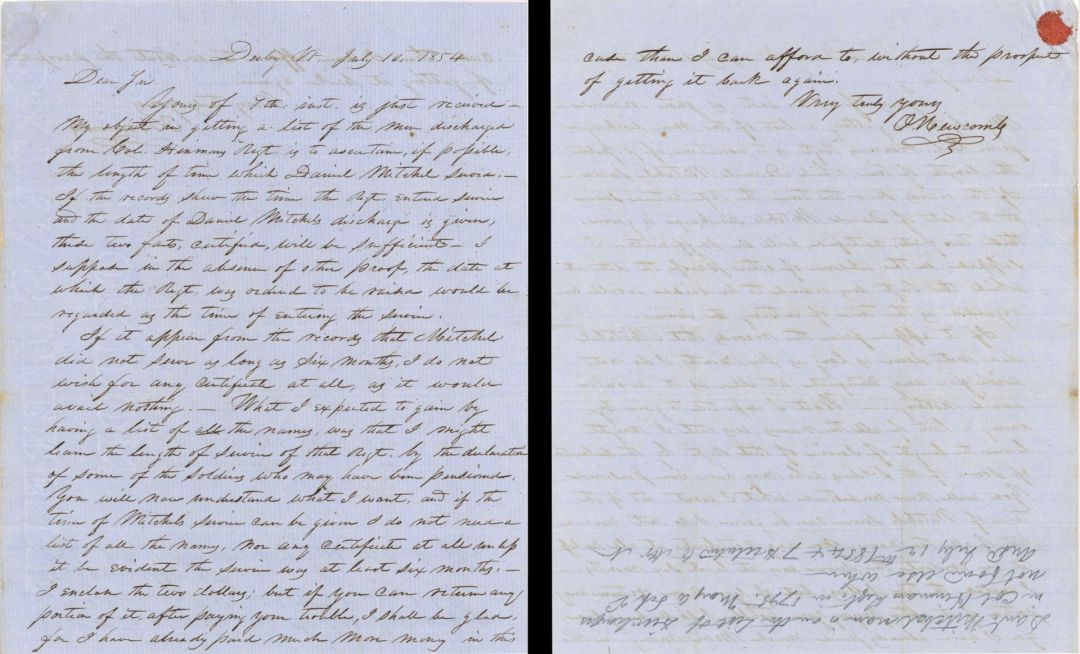 Derby Vt July 10. 1854
Dear Sir
Yours of 7th. inst. is just received –
My object in getting a list of the men discharged
from Col. Hinmans Regt. is to ascertain, if possible,
the length of time which Daniel Mitchel served. –
If the records shew the time the Regt. entered service
and the date of Daniel Mitchels discharge is given,
these two facts, certified, will be sufficient – I
suppose in the absence of other proof, the date at
which the Regt. was ordered to be raised would be
regarded as the time of entering the service.
If it appear from the records that Mitchel
did not serve as long as six months, I do not
wish for any certificate at all, as it would
avail nothing. – What I expected to gain by
having a list of all the names, was that I might
learn the length of service of that Regt. by the declaration
of some of the soldiers who may have been pensioned.
You will now understand what I want, and if the
time of Mitchels service can be given I do not need a
list of all the names, nor any certificate at all unless
it be evident the service was at least six months. –
I enclose the two dollars; but if you can return any
portion of it, after paying your trouble, I shall be glad,
for I have already paid much more money in this
case than I can afford to, without the prospect
of getting it back again.
Very truly yours
O Newcomb
Danl Mitchel man is on the list of
in Col Hinmans Regt. in 1775.
not found else where
Ansd July 12 1854